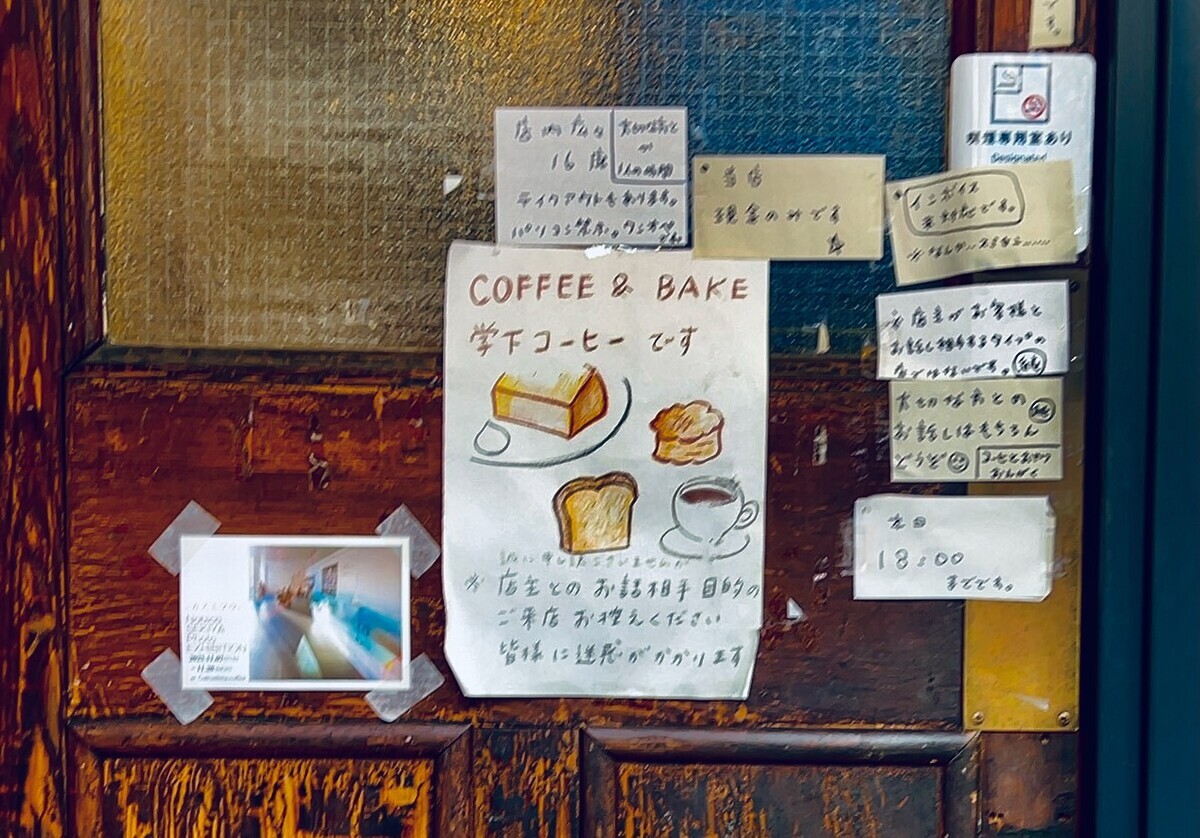 です。
喫煙専用室あり
Designated
店内広々
16席
大切な友と
が
テイクアウトもあります。
パソコン禁止。
当店
現金のみです
インボイス
未対応です。
※店主がお客様と
お話し相手するタイプの
店ではないです。
大切な友との
お話しはもちろん
どうぞ
COFFEE & BAKE
学下コーヒー です
誠に申し訳ございませんが
※ 店主との お話相手 目的の
ご来店 お控えください
皆様に迷惑がかかります
本日
18:00
までです。
Photo
EXHIBITION